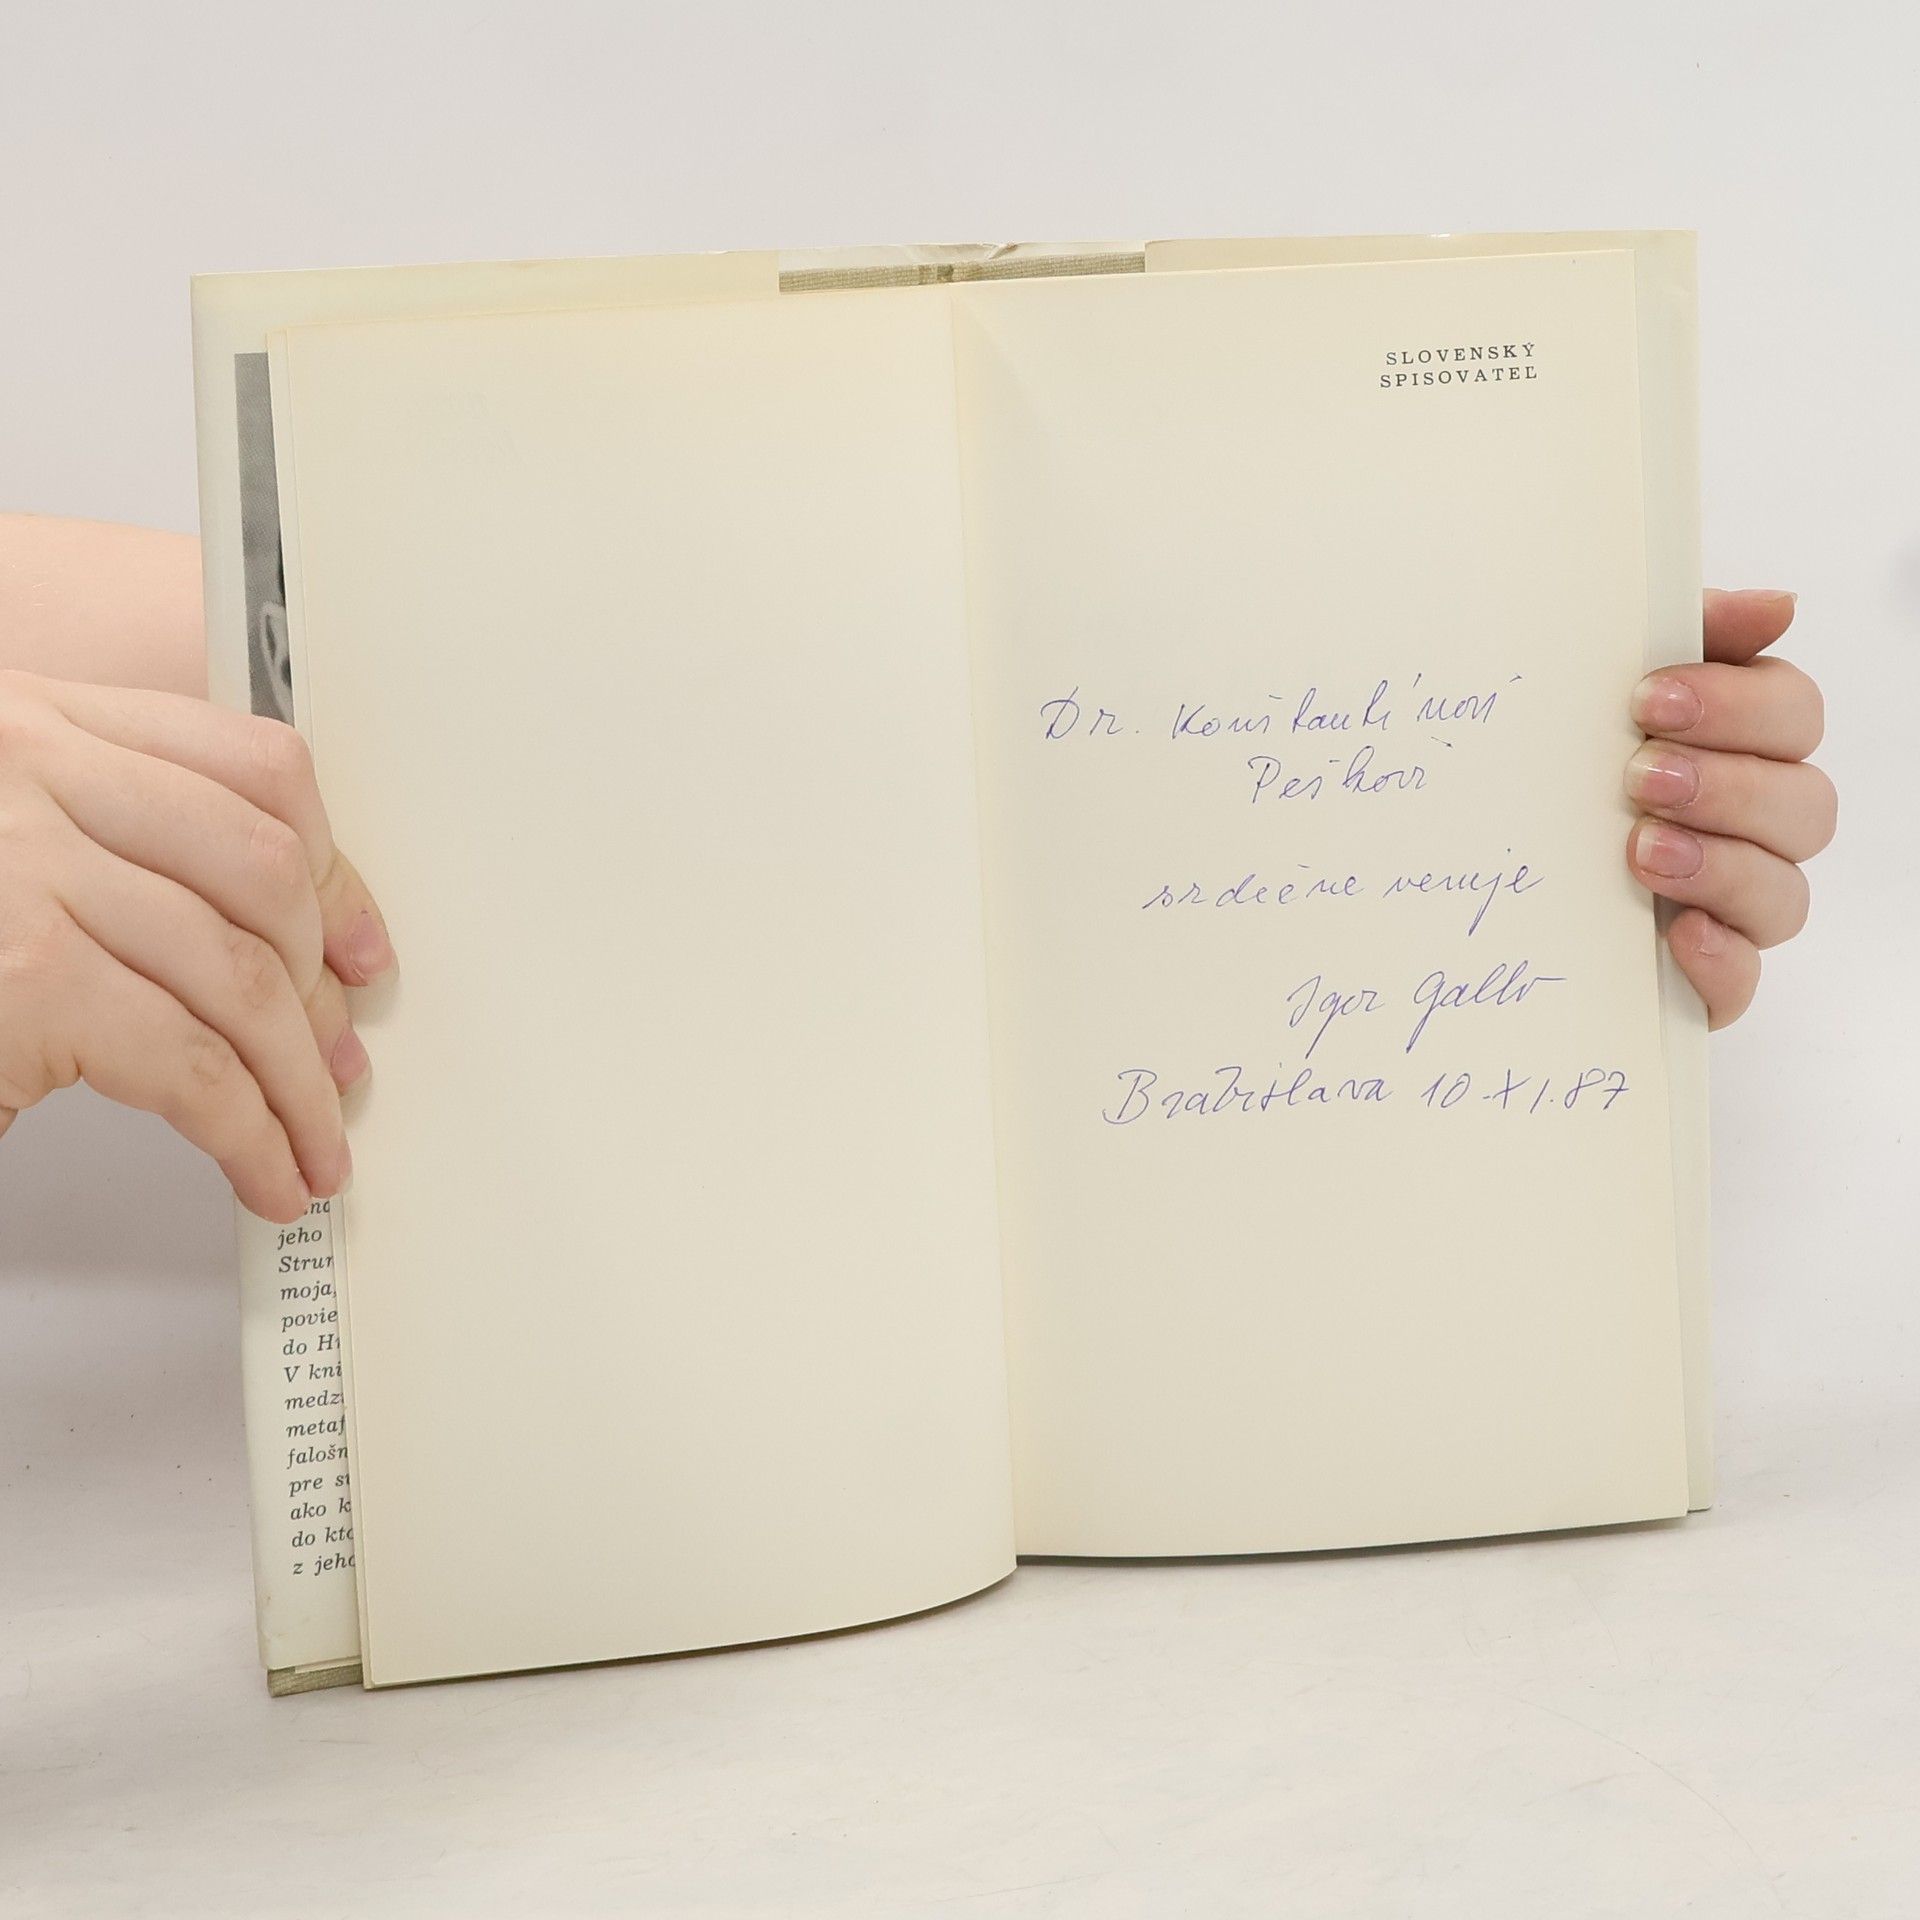 SLOVENSKÝ
SPISOVATEĽ
Dr. Konštantínovi
Peškovi
srdečne venuje
Igor Gallo
Bratislava 10.XI.87
jeho
Strun
moja,
povie
do Hr
V kni
medzi
metaf
falošn
pre s
ako k
do kto
z jeho